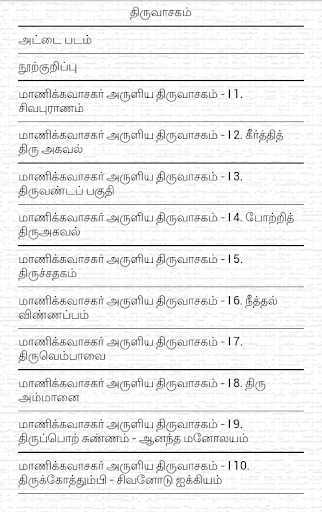 திருவாசகம்
அட்டை படம்
நூற்குறிப்பு
மாணிக்கவாசகர் அருளிய திருவாசகம் - I 1.
சிவபுராணம்
மாணிக்கவாசகர் அருளிய திருவாசகம் - I 2. கீர்த்தித்
திரு அகவல்
மாணிக்கவாசகர் அருளிய திருவாசகம் - I 3.
திருவண்டப் பகுதி
மாணிக்கவாசகர் அருளிய திருவாசகம் - I 4. போற்றித்
திருஅகவல்
மாணிக்கவாசகர் அருளிய திருவாசகம் - I 5.
திருச்சதகம்
மாணிக்கவாசகர் அருளிய திருவாசகம் - I 6. நீத்தல்
விண்ணப்பம்
மாணிக்கவாசகர் அருளிய திருவாசகம் - I 7.
திருவெம்பாவை
மாணிக்கவாசகர் அருளிய திருவாசகம் - I 8. திரு
அம்மானை
மாணிக்கவாசகர் அருளிய திருவாசகம் - I 9.
திருப்பொற் சுண்ணம் - ஆனந்த மனோலயம்
மாணிக்கவாசகர் அருளிய திருவாசகம் - I 10.
திருக்கோத்தும்பி - சிவனோடு ஐக்கியம்